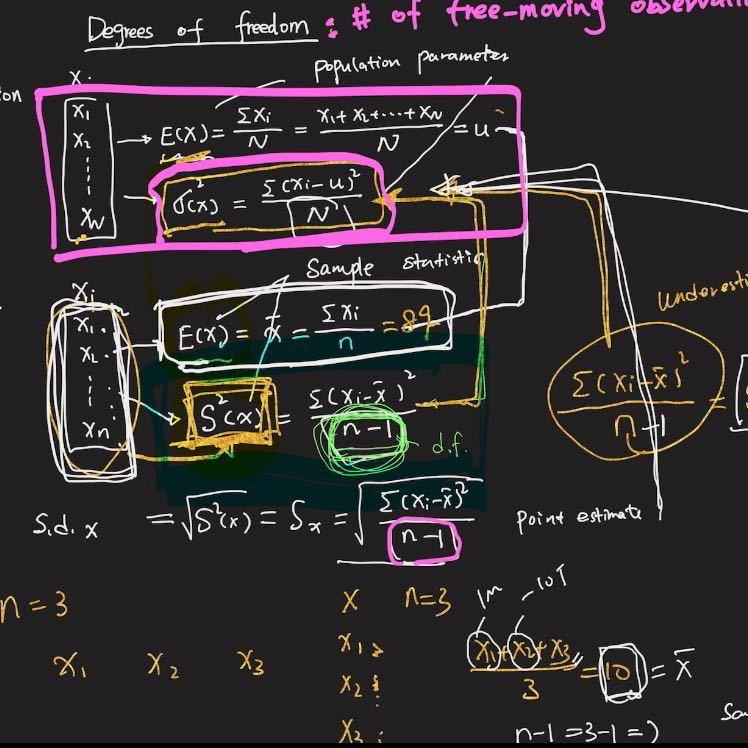 Degrees of freedom : # of free-moving observat
population parameter
Xi
X1
X2
XN
E(X) = ΣXi/N = X1+X2+...+XN/N = u
σ²(x) = Σ(Xi-u)²/N
Sample statistic
Xi
X1
X2
Xn
E(X) = x̄ = ΣXi/n = 89
S²(x) = Σ(Xi-x̄)²/n-1
d.f.
Underesti
Σ(Xi-x̄)²/n-1 =
S.d. x = √S²(x) = Sx = √Σ(Xi-x̄)²/n-1
Point estimate
n = 3
X1 X2 X3
X n=3
X1
X2
X3
1M 10T
X1+X2+X3/3 = 10 = x̄
n-1 = 3-1 = 2